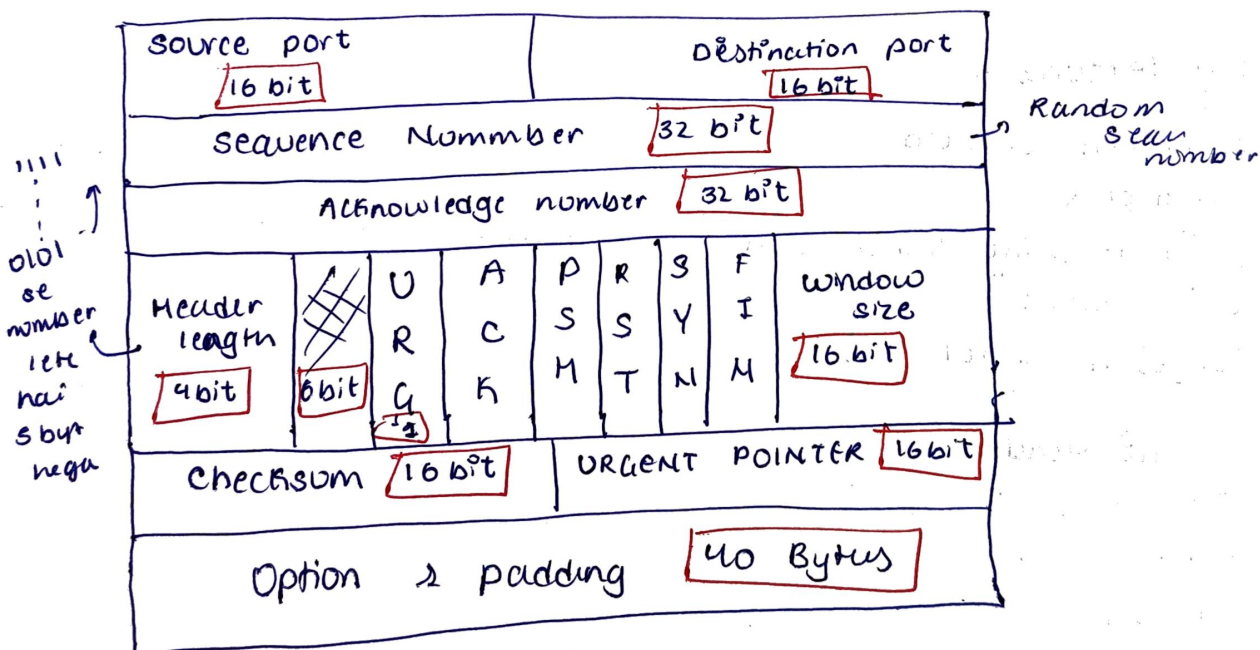 Source port
16 bit
Destination port
16 bit
Sequence Nommber
32 bit
Random
number
Acknowledge number
32 bit
1111
0101
se
number
lete
hai
Header
length
4 bit
6 bit
URG
1
ACK
PSH
RST
SYN
FIN
Window
size
16 bit
Checksum
16 bit
URGENT POINTER
16 bit
Option & padding
40 Bytes